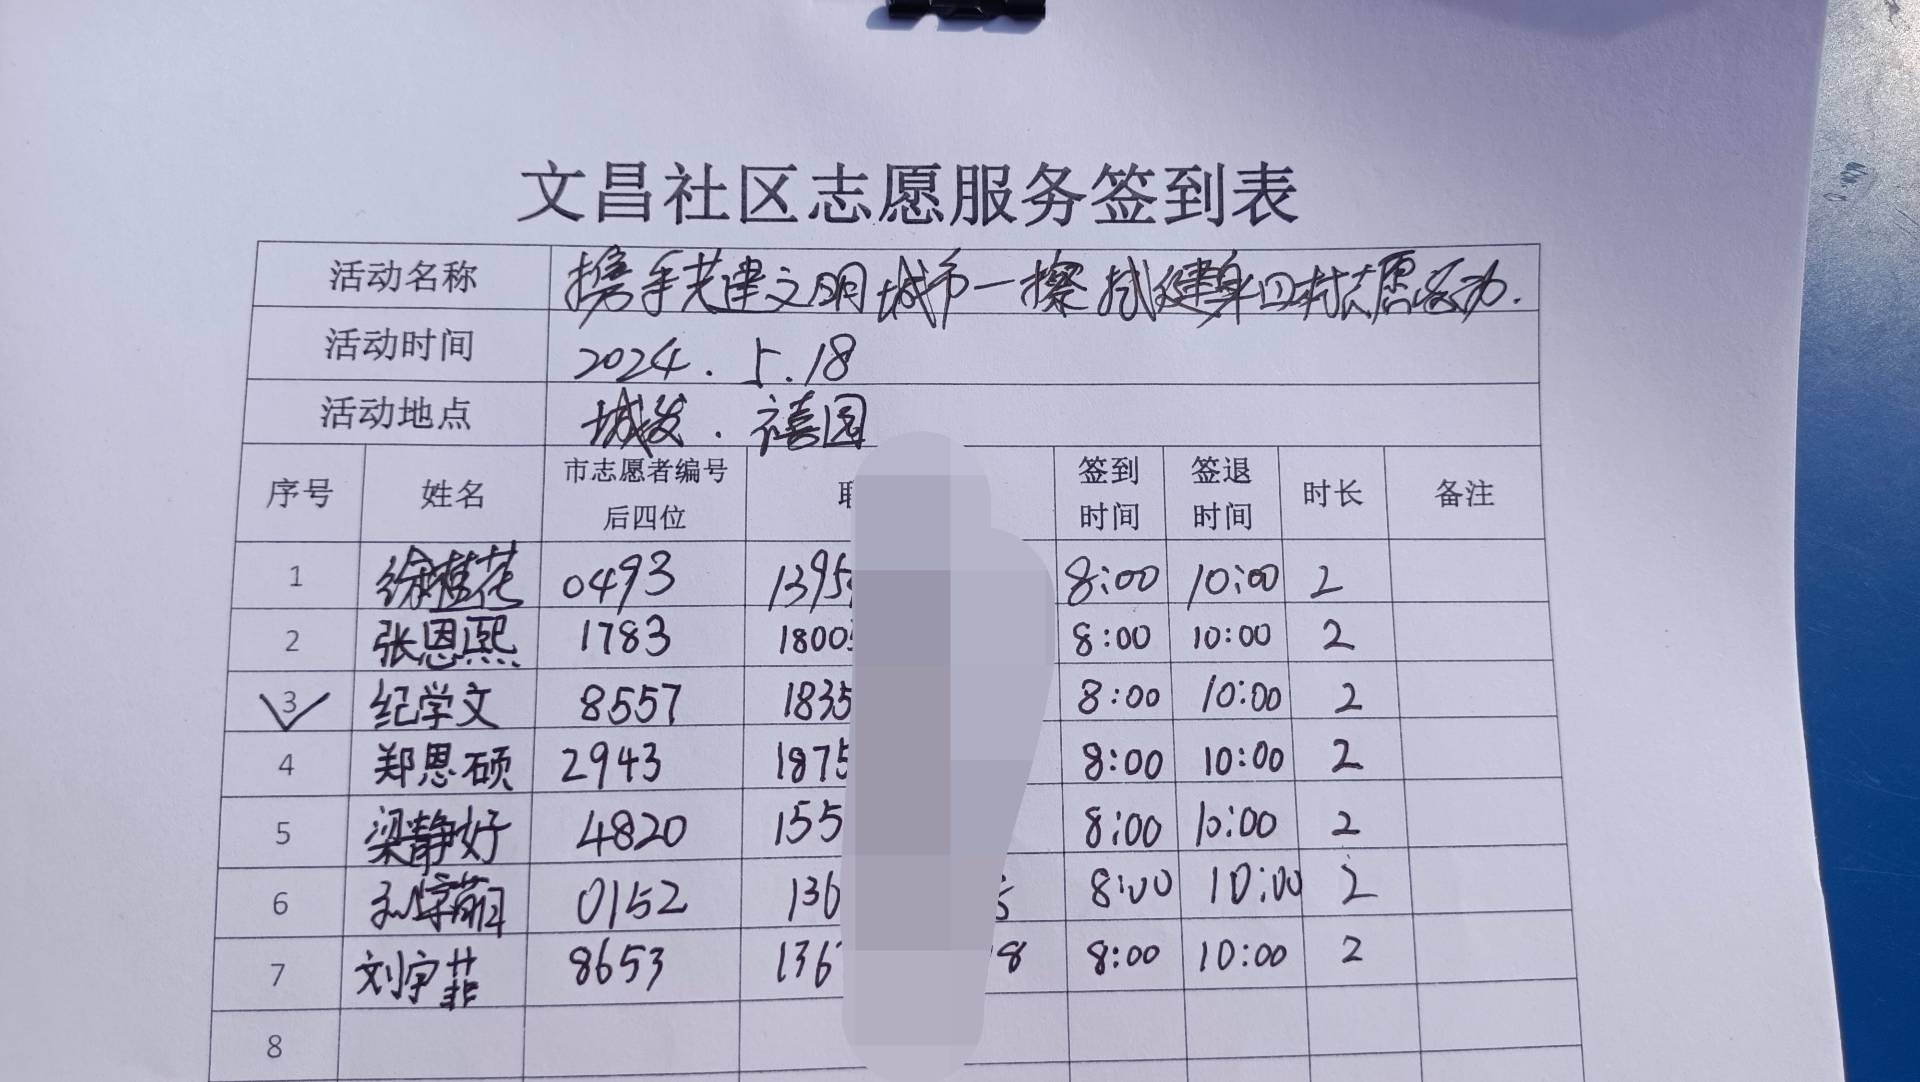 文昌社区志愿服务签到表
活动名称 携手共建文明城市一擦拭健身器材志愿活动.
活动时间 2024.5.18
活动地点 城发.禧园
序号 姓名 市志愿者编号后四位 联 签到时间 签退时间 时长 备注
1 徐桂花 0493 1395 8:00 10:00 2
2 张恩熙 1783 1800 8:00 10:00 2
3 纪学文 8557 1835 8:00 10:00 2
4 郑恩硕 2943 1875 8:00 10:00 2
5 梁静好 4820 155 8:00 10:00 2
6 0152 136 8:00 10:00 2
7 刘宇菲 8653 136 8 8:00 10:00 2
8